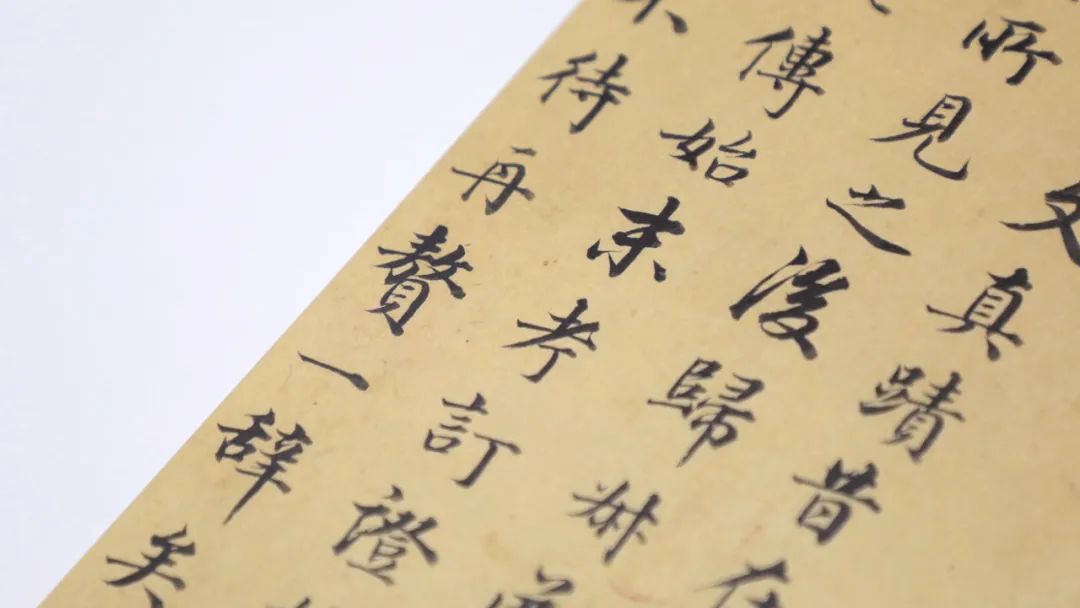 文真蹟昔在
所見之後歸
傳始末考訂證
不待再贅一辞矣